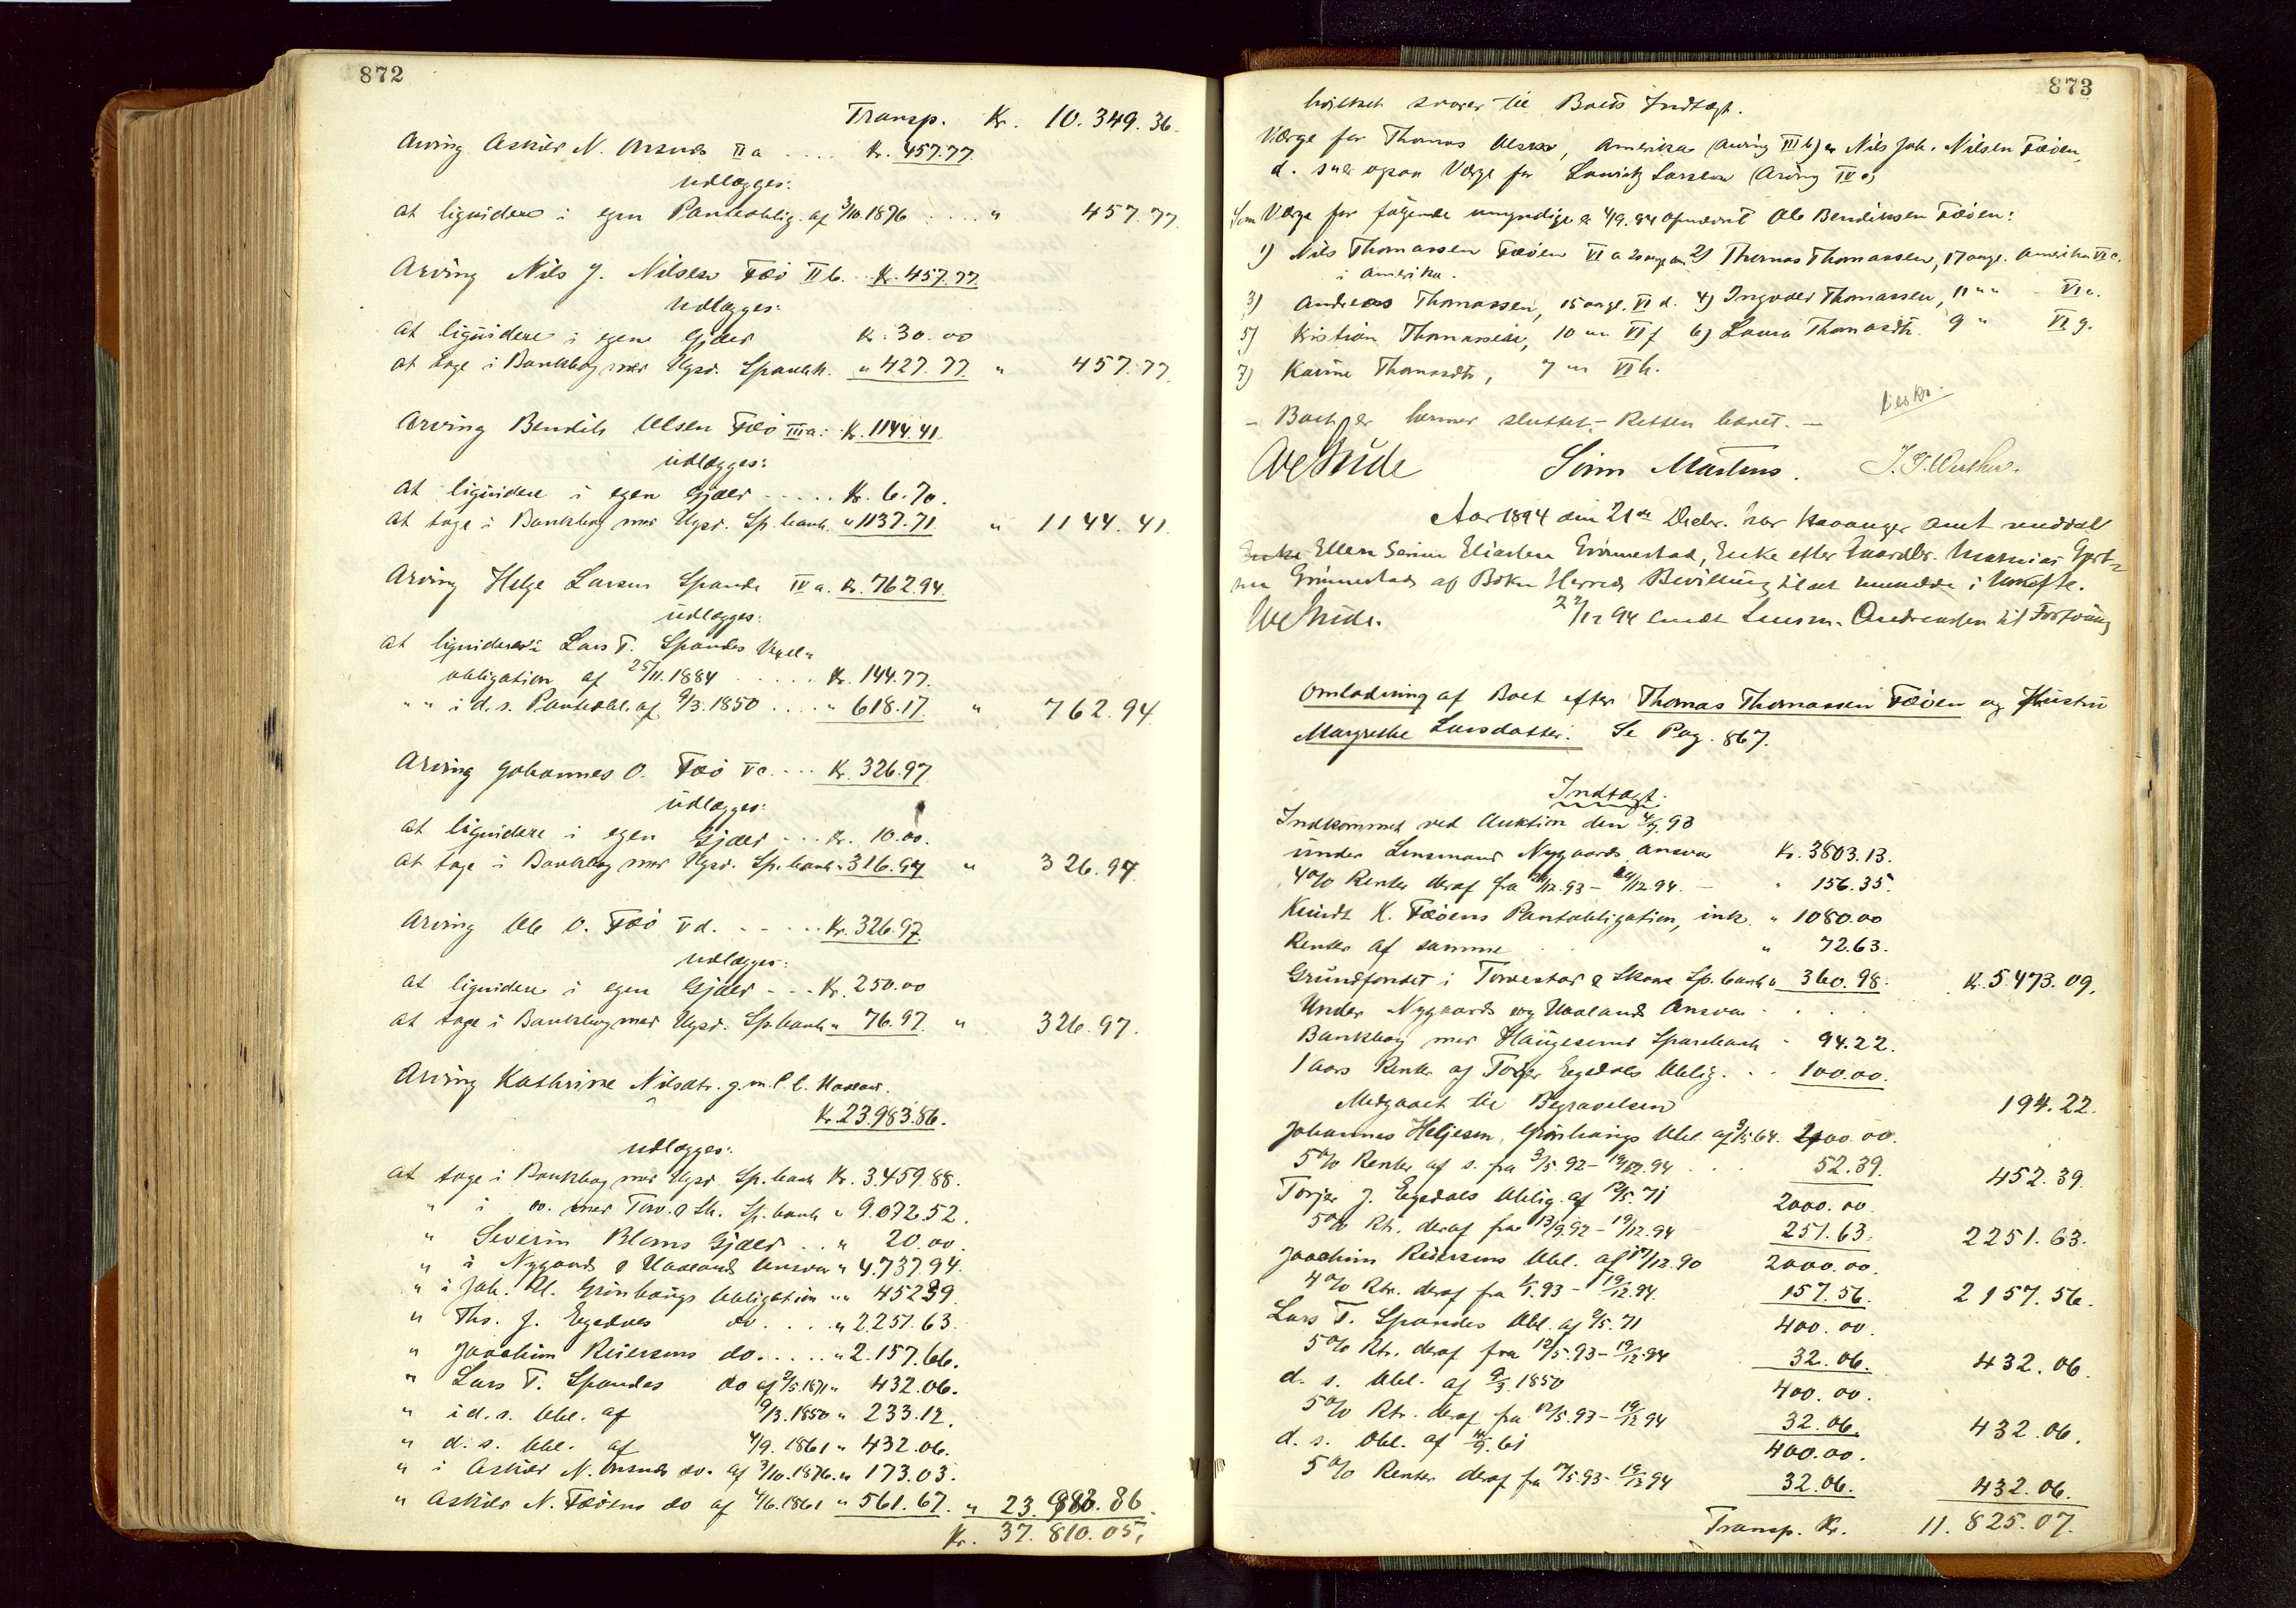 872
Transp. Kr. 10.349.36.
Arving Askild N. Aksnes II a .... Kr. 457.77.
udlægges:
at liquidere i egen Panteoblig. af 3/10.1876 .... " 457.77.
Arving Nils J. Nilsen Fæø II b. .. Kr. 457.77.
udlægges:
at liquidere i egen Gjæld Kr. 30.00
at tage i Bankbog med Hgsd. Sparebk. " 427.77. " 457.77.
Arving Bendik Olsen Fæø III a: . Kr. 1144.41.
udlægges:
at liquidere i egen Gjæld ..... Kr. 6.70.
at tage i Bankbog med Hgsd. Sp.bank. " 1137.71. " 1144.41.
Arving Helge Larsen Spande IV a. Kr. 762.94.
udlægges:
at liquidere i Lars T. Spandes
obligation af 25/11.1884 ..... Kr. 144.77.
" " i d. s. Panteobl. af 9/3.1850 .... " 618.17. " 762.94.
Arving Johannes O. Fæø V c. ... Kr. 326.97.
udlægges:
at liquidere i egen Gjæld ... Kr. 10.00.
at tage i Bankbog med Hgsd. Sp.bank " 316.97 " 326.97.
Arving Ole O. Fæø V d. ..... Kr. 326.97.
udlægges:
at liquidere i egen Gjæld ... Kr. 250.00
at tage i Bankbog med Hgsd. Sp.bank " 76.97. " 326.97.
Arving Kathrine Nilsdtr. g. m.
Kr. 23.983.86.
udlægges:
at tage i Bankbog med Hgsd. Sp.bank Kr. 3.459.88.
" i do. med Torv. & Sk. Sp.bank " 9.072.52.
" Severin Bloms Gjæld .. " 20.00.
" i Nygaards & Haalands Ansvar " 4.737.94.
" i Joh. H. Grønhaugs Obligation " " 452.39
" Ths. J. Egedals do .... " 2251.63.
" Joachim Reiersens do. .... " 2.157.66.
" Lars T. Spandes do af 9/5.1871 " 432.06.
" i d. s. Obl. af 9/3.1850 " 233.12.
" d. s. Obl. af 4/9.1861 " 432.06.
" i Askild N. Aksnes do. af 3/10.1876. " 173.03.
" Askild N. Fæøens do af 4/6.1861 " 561.67. " 23.983.86.
Kr. 37.810.05.
873
hvilket svarer til Boets Indtægt.
Værge for Thomas Olsen, Amerika (Arving III b) er Nils Joh. Nilsen Fæøen,
d. s. er ogsaa Værge for Lauritz Larsen (Arving IV c)
Som Værge for følgende umyndige er 4/9.94 opnævnt Ole Bendiksen Fæøen:
1) Nils Thomassen Fæøen VI a 20 aar gm. 2) Thomas Thomassen, 17 aar g. Amerika VI c.
i Amerika.
3) Andreas Thomassen, 15 aar g. VI d. 4) Ingvald Thomassen, 11 " " VI e.
5) Kristian Thomassen, 10 " " VI f 6) Laura Thomasdtr. 9 " VI g.
7) Karine Thomasdtr, 7 " " VI h.
- Boet er hermed sluttet. - Retten hævet. -
Sivin Mastens.
Aar 1894 den 21de Decbr. har Stavanger Amt meddelt
Enke Ellen Serine Eliasdtr Grønnestad, Enke efter Gaardbr. Gert-
sen Grønnestad af Bokn Herred, Bevilling til at hensidde i Uskifte.
22/12 94 sendt Lensm. Andreassen til Forføining
Omlodning af Boet efter Thomas Thomassen Fæøen og Hustru
Margrethe Larsdatter. Se Pag. 867.
Indtægt.
Indkommet ved Auktion den 4/7.93
under Lensmand Nygaards Ansvar Kr. 3803.13.
4% Renter deraf fra 12.93 - 19/12.94. - " 156.35.
Knudt K. Fæøens Pantobligation, ink. " 1080.00
Renter af samme " 72.63.
Grundfondet i Torvestad & Skaare Sp.bank " 360.98. Kr. 5.473.09.
Under Nygaards og Haalands Ansvar
Bankbog med Haugesunds Sparebank " 94.22.
1 Aars Renter af Torjer Egedals Oblig. .. 100.00.
Medgaaet til Begravelsen 194.22.
Johannes Heljesen Grønhaugs Obl. af 9/5.64. 400.00.
5% Renter af s. fra 9/5.92 - 19/12.94 ... 52.39. 452.39.
Torjer J. Egedals Oblig. af 12/5.71 2000.00.
5% Rtr. deraf fra 13/9.92 - 19/12.94 251.63. 2251.63.
Joachim Reiersens Obl. af 17/12.90 2000.00.
4% Rtr. deraf fra 1/1.93 - 19/12.94. 157.56. 2157.56.
Lars T. Spandes Obl. af 9/5.71 400.00.
5% Rtr. deraf fra 12/5.93 - 19/12.94 32.06. 432.06.
d. s. Obl. af 9/3.1850 400.00.
5% Rtr. deraf fra 12/5.93 - 19/12 94 32.06. 432.06.
d. s. Obl. af 4/9.61 400.00.
5% Renter deraf fra 12/5.93 - 19/12 94 32.06. 432.06.
Transp. Kr. 11.825.07.